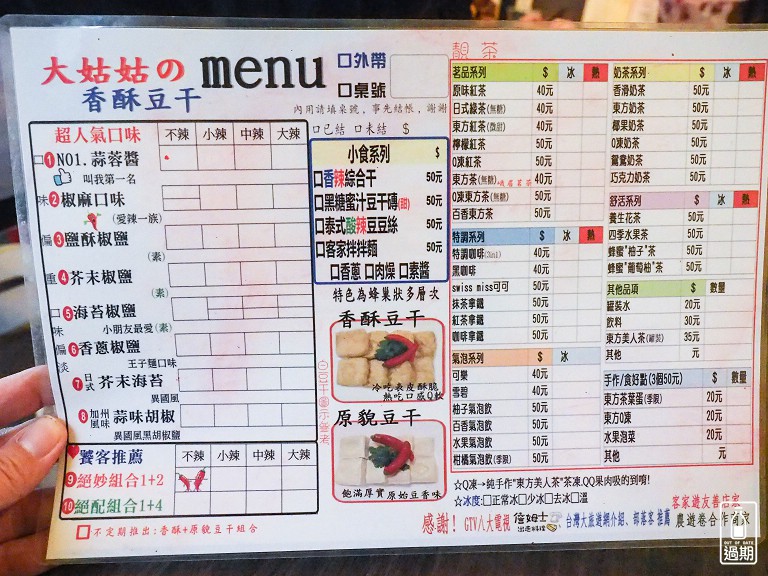 大姑姑の menu
香酥豆干
口外帶
口桌號
內用請填桌號，事先結帳，謝謝
口已結 口未結 $
超人氣口味 不辣 小辣 中辣 大辣
口味偏重
口味偏淡
1 NO1. 蒜蓉醬
叫我第一名
2 椒麻口味
(愛辣一族)
3 鹽酥椒鹽
(素)
4 芥末椒鹽
(素)
5 海苔椒鹽
小朋友最愛(素)
6 香蔥椒鹽
王子麵口味
7 日式 芥末海苔
異國風
8 加州風味 蒜味胡椒
異國風黑胡椒鹽
饕客推薦 不辣 小辣 中辣 大辣
9 絕妙組合1+2
10 絕配組合1+4
口不定期推出:香酥+原貌豆干組合
小食系列 $
口香辣綜合干 50元
口黑糖蜜汁豆干磚(甜) 50元
口泰式酸辣豆豆絲 50元
口客家拌拌麵 50元
口香蔥 口肉燥 口素醬
特色為蜂巢狀多層次
香酥豆干
冷吃表皮酥脆
熱吃口感Q軟
原貌豆干
飽滿厚實 原始豆香味
靚 茶
茗品系列 $ 冰 熱
原味紅茶 40元
日式綠茶(無糖) 40元
東方紅茶(微甜) 40元
檸檬紅茶 50元
Q凍紅茶 50元
東方茶(無糖) 50元
Q凍東方茶(無糖) 50元
百香東方茶 50元
特調系列 $ 冰 熱
特調咖啡(2in1) 40元
黑咖啡 40元
swiss miss可可 50元
抹茶拿鐵 50元
紅茶拿鐵 50元
咖啡拿鐵 50元
氣泡系列 $ 冰
可樂 40元
雪碧 40元
柚子氣泡飲 50元
百香氣泡飲 50元
水果氣泡飲 50元
柑橘氣泡飲(季限) 50元
奶茶系列 $ 冰 熱
香滑奶茶 50元
東方奶茶 50元
椰果奶茶 50元
Q凍奶茶 50元
鴛鴦奶茶 50元
巧克力奶茶 50元
舒活系列 $ 冰 熱
養生花茶 50元
四季水果茶 50元
蜂蜜"柚子"茶 50元
蜂蜜"葡萄柚"茶 50元
其他品項 $ 數量
罐裝水 20元
飲料 30元
東方美人茶(罐裝) 35元
其他 元
手作/食好點(3個50元) $ 數量
東方茶葉蛋(季限) 20元
東方Q凍 20元
水果泡菜 20元
其他 元
☆Q凍→純手作"東方美人茶"茶凍.QQ果肉吸的到唷!
☆冰度:口正常冰口少冰口去冰口溫
客家遊友善店家
感謝! GTV八大電視 詹姆士 出走料理、台灣大旅遊網介紹、部落客推薦 農遊券合作商家
OUT OF DATE
過期